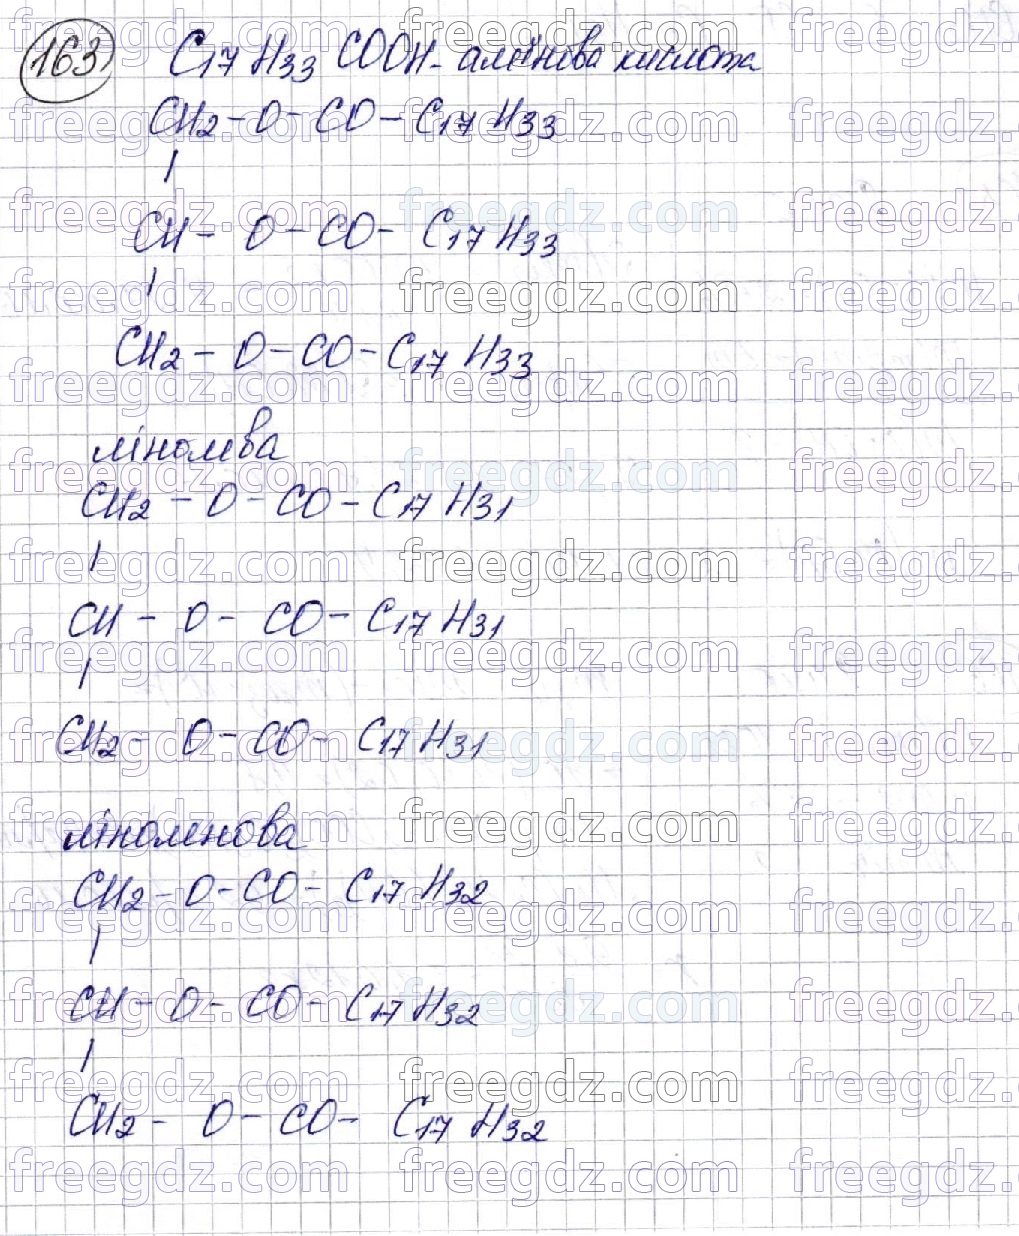 163 C17H33COOH - алеінова кислота
CH2 - O - CO - C17H33
|
CH - O - CO - C17H33
|
CH2 - O - CO - C17H33
лінолева
CH2 - O - CO - C17H31
|
CH - O - CO - C17H31
|
CH2 - O - CO - C17H31
ліноленова
CH2 - O - CO - C17H32
|
CH - O - CO - C17H32
|
CH2 - O - CO - C17H32
freegdz.com